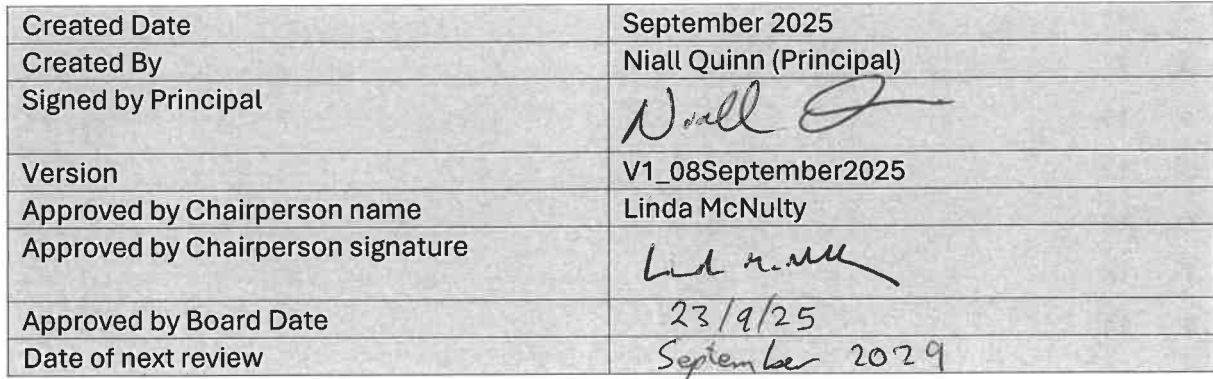 Created Date September 2025
Created By Niall Quinn (Principal)
Signed by Principal Niall Q
Version V1_08September2025
Approved by Chairperson name Linda McNulty
Approved by Chairperson signature
Approved by Board Date 23/9/25
Date of next review September 2029